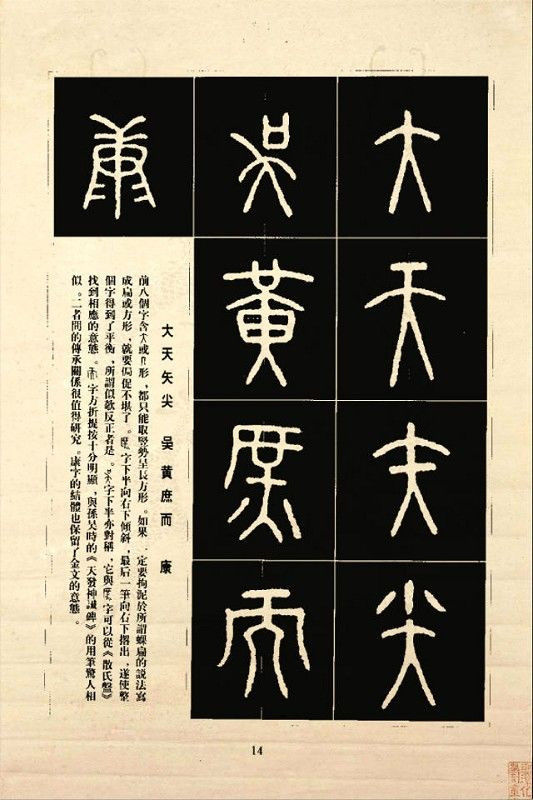 大
天
矢
尖
吳
黃
庶
而
康
大天矢尖　吳黃庶而　康
前八個字含大或形，都只能取竪勢呈長方形。如果一定要拘泥於所謂螺扁的說法寫
成扁或方形，就要侷促不堪了。庶字下半向右下傾斜，最后一筆向右下撂出，遂使整
個字得到了平衡，所謂似欹反正者是。吳字下半亦對稱，它與庶字可以從《散氏盤》
找到相應的意態。而字方折提按十分明顯，與孫吴時的《天發神讖碑》的用筆驚人相
似。二者間的傳承關係很值得研究。康字的結體也保留了金文的意態。
14